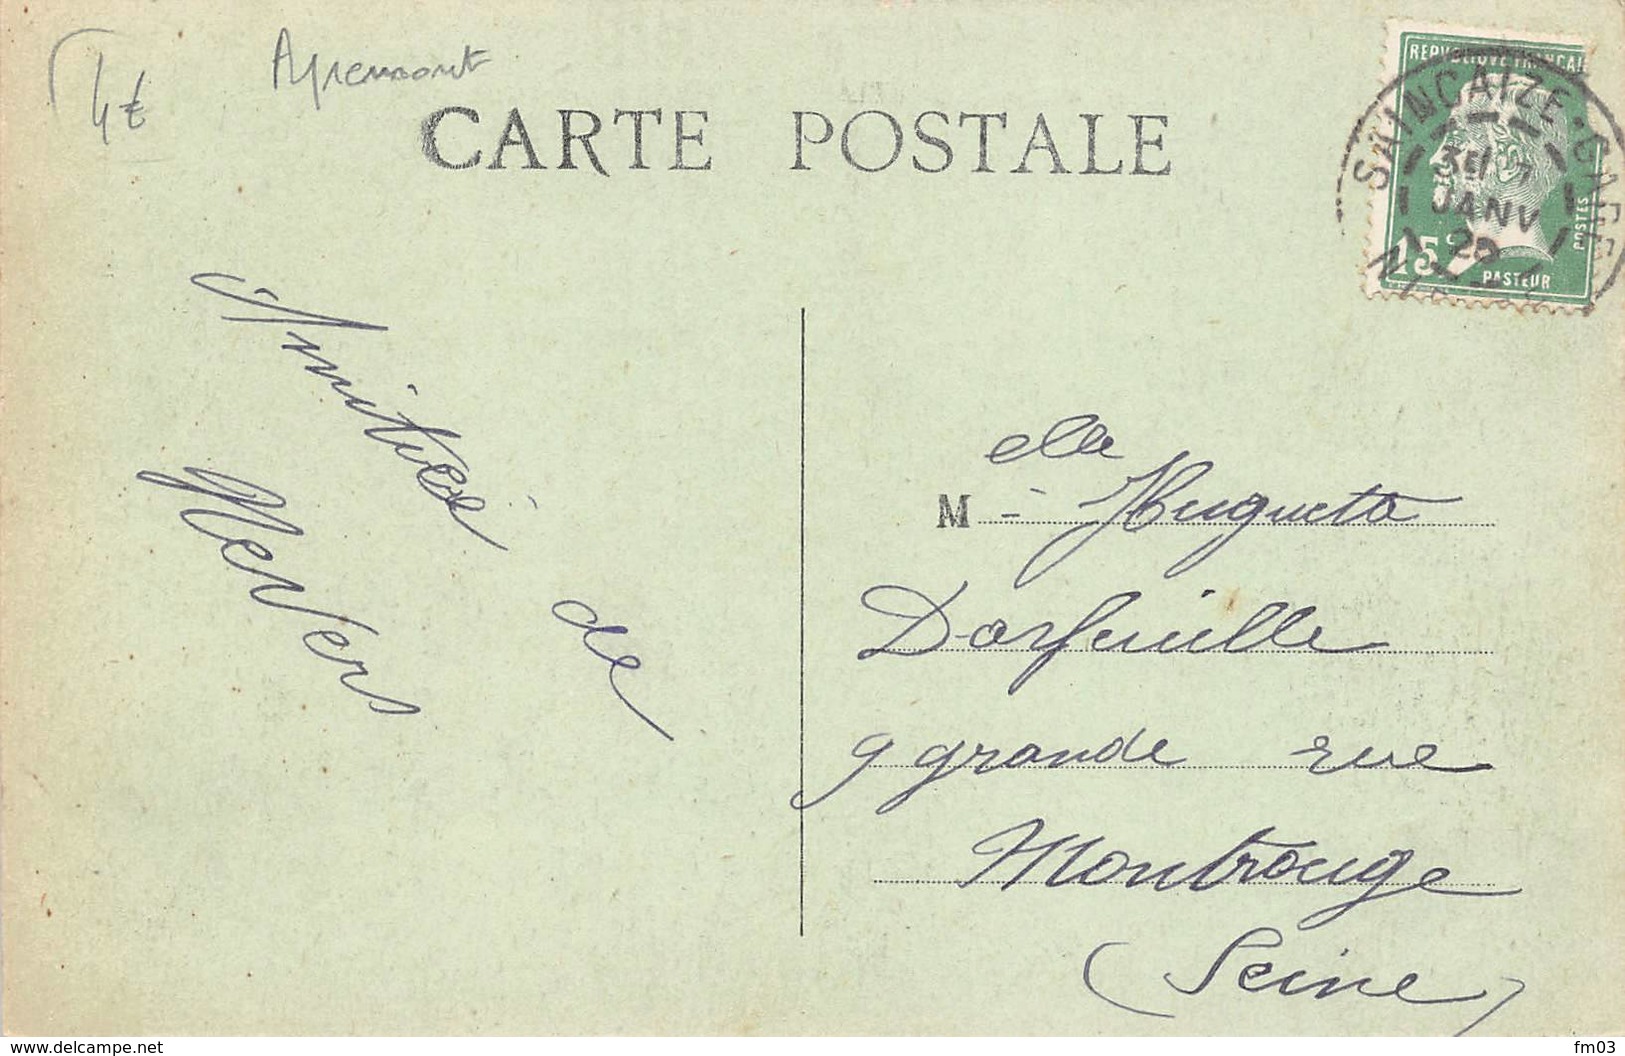 4€
Apremont
CARTE POSTALE
REPUBLIQUE FRANCAI
POSTES
15c
PASTEUR
SAINCAIZE-GARE
JANV
Amitiés de
Nevers
M elle Huguette
Dorfeuille
9 grande rue
Montrouge
(Seine)
www.delcampe.net
fm03